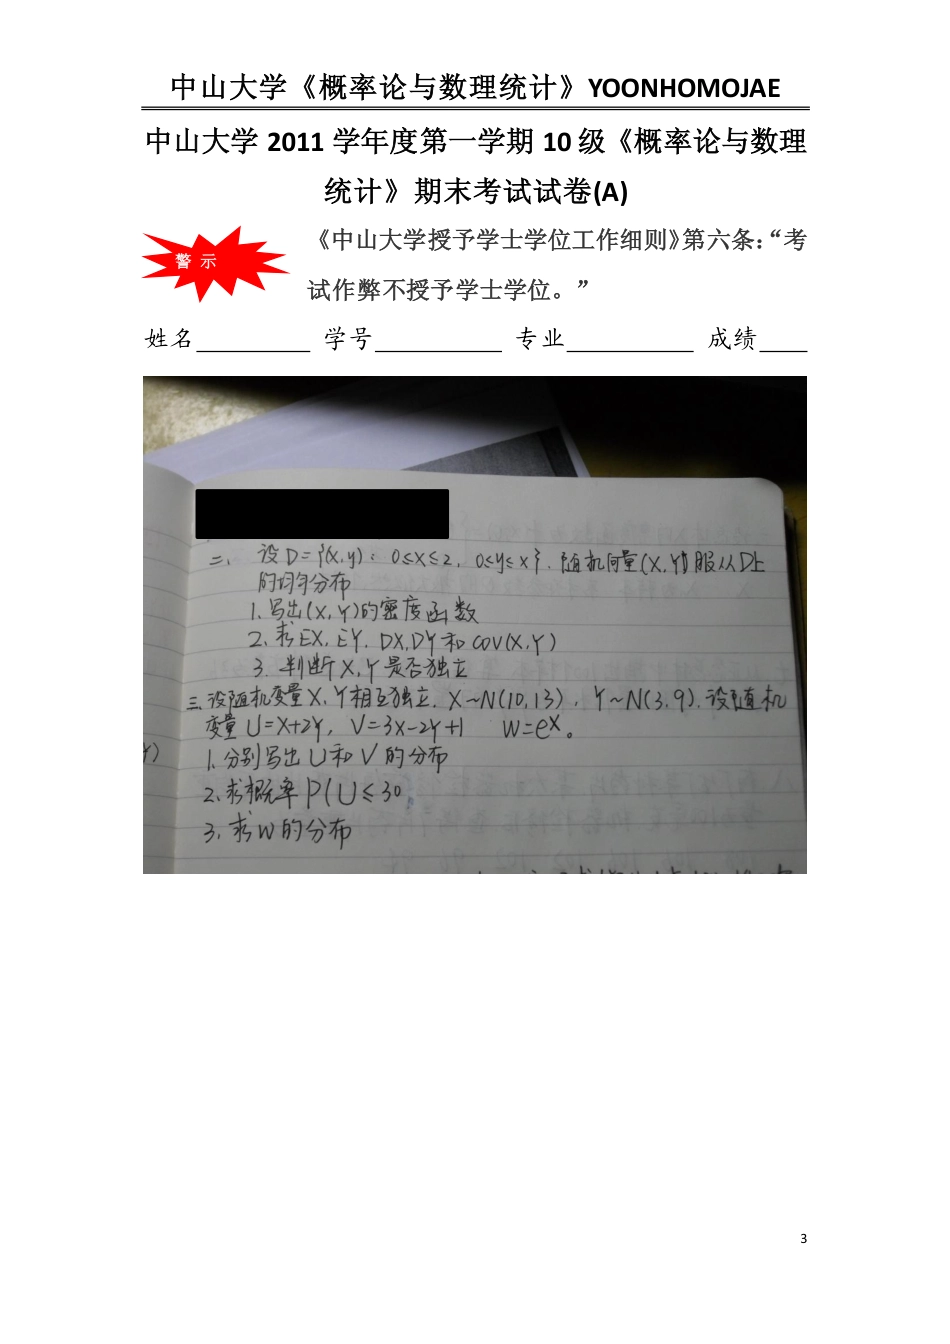 中山大学《概率论与数理统计》YOONHOMOJAE
中山大学 2011 学年度第一学期 10 级《概率论与数理
统计》期末考试试卷(A)
警 示
《中山大学授予学士学位工作细则》第六条：“考
试作弊不授予学士学位。”
姓名 学号 专业 成绩
二、设D={(x,y): 0≤x≤2, 0≤y≤x}. 随机向量(X,Y)服从D上
的均匀分布
1. 写出(X,Y)的密度函数
2. 求EX, EY, DX, DY和COV(X,Y)
3. 判断X,Y是否独立
三.设随机变量X,Y相互独立. X~N(10,13), Y~N(3,9). 设随机
变量U=X+2Y, V=3X-2Y+1 W=eX。
1. 分别写出U和V的分布
2. 求概率P(U≤30
3. 求W的分布
3